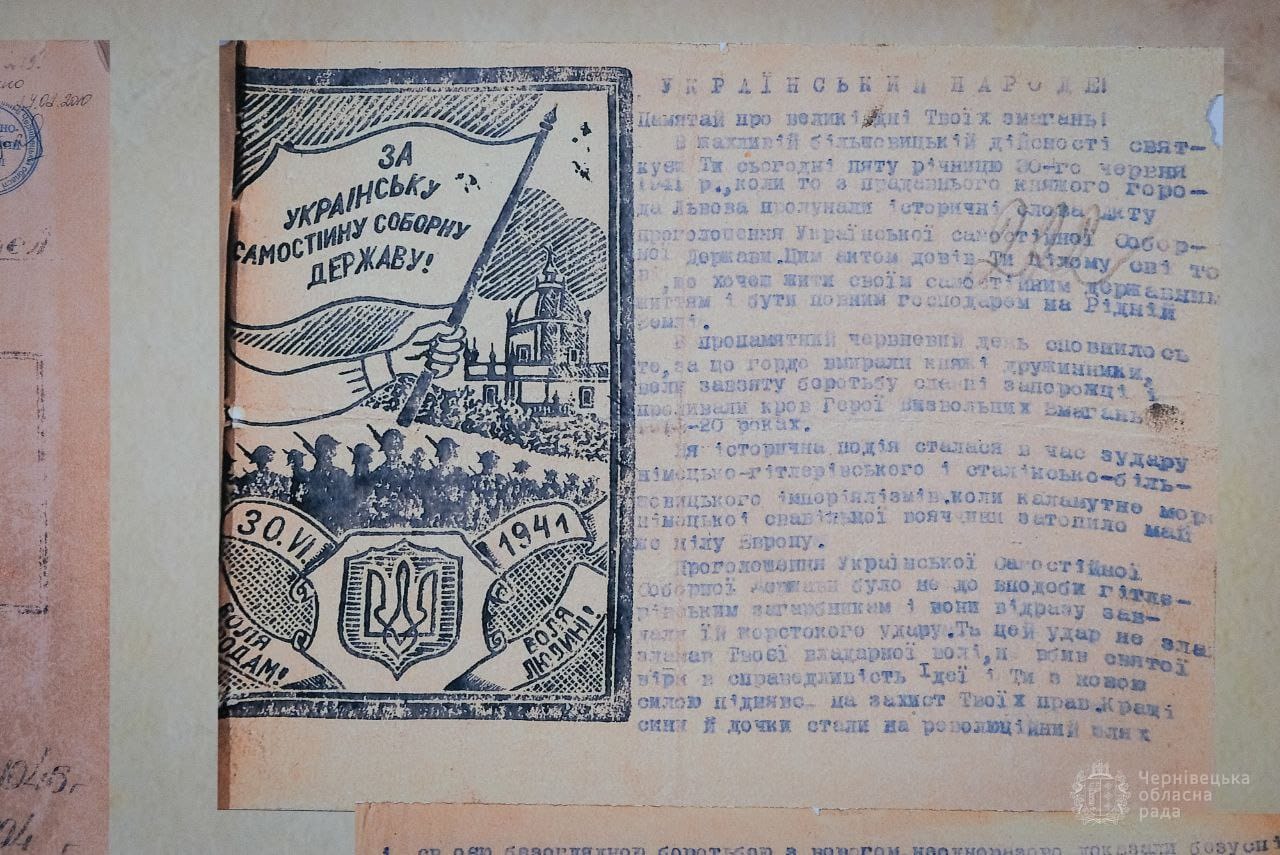 19.02.2010
ЗА
УКРАІНСЬКУ
САМОСТІЙНУ СОБОРНУ
ДЕРЖАВУ!
30.VI
1941
ВОЛЯ
ВОЛЯ
ЛЮДИНІ!
УКРАЇНСЬКИЙ НАРОДЕ!
Памятай про великі дні Твоїх змагань!
В жахливій більшовицькій дійсності свят-
куєш Ти сьогодні пяту річницю 30-го червня
1941 р., коли то з прадавнього княжого горо-
да Львова пролунали історичні слова Акту
проголошення Української самостійної Собор-
ної Держави. Цим актом довів Ти цілому сві то
ві, що хочеш жити своїм самостійним державним
життям і бути повним господарем на Рідній
Землі.
В пропамятний червневий день сповнилось
те, за що гордо вмирали княжі дружинники,
вели завзяту боротьбу славні запорожці і
проливали кров Герої Визвольних Змагань
-20 роках.
Ця історична подія сталася в час зудару
німецько-гітлерівського і сталінсько-біль-
шовицького імперіялізмів, коли каламутне море
німецької свавільної вояччини затопило май
же цілу Европу.
Проголошення Української Самостійної
Соборної Держави було не до вподоби гітле-
рівським загарбникам і вони відразу зав-
дали їй жорстокого удару. Та цей удар не злам
зламав Твоєї владарної волі, не вбив святої
віри в справедливість Ідеї і Ти з новою
силою піднявся на захист Твоїх прав. Кращі
сини й дочки стали на революційний шлях
і своєю безоглядною боротьбою з ворогом неодноразово доказали
Чернівецька
обласна
рада